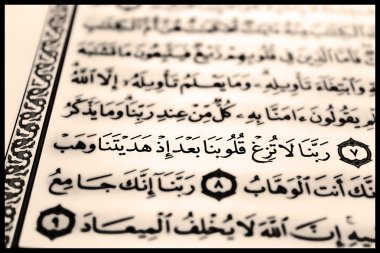 فَأَمَّا الَّذِينَ فِي قُلُوبِهِمْ زَيْغٌ فَيَتَّبِعُونَ مَا تَشَابَهَ
وَابْتِغَاءَ تَأْوِيلِهِ وَمَا يَعْلَمُ تَأْوِيلَهُ إِلَّا اللَّهُ
يَقُولُونَ ءَامَنَّا بِهِ كُلٌّ مِنْ عِندِ رَبِّنَا وَمَا يَذَّكَّرُ
٧ رَبَّنَا لَا تُزِغْ قُلُوبَنَا بَعْدَ إِذْ هَدَيْتَنَا وَهَبْ
نَّكَ أَنتَ الْوَهَّابُ ٨ رَبَّنَا إِنَّكَ جَامِعُ
فِيهِ إِنَّ اللَّهَ لَا يُخْلِفُ الْمِيعَادَ ٩